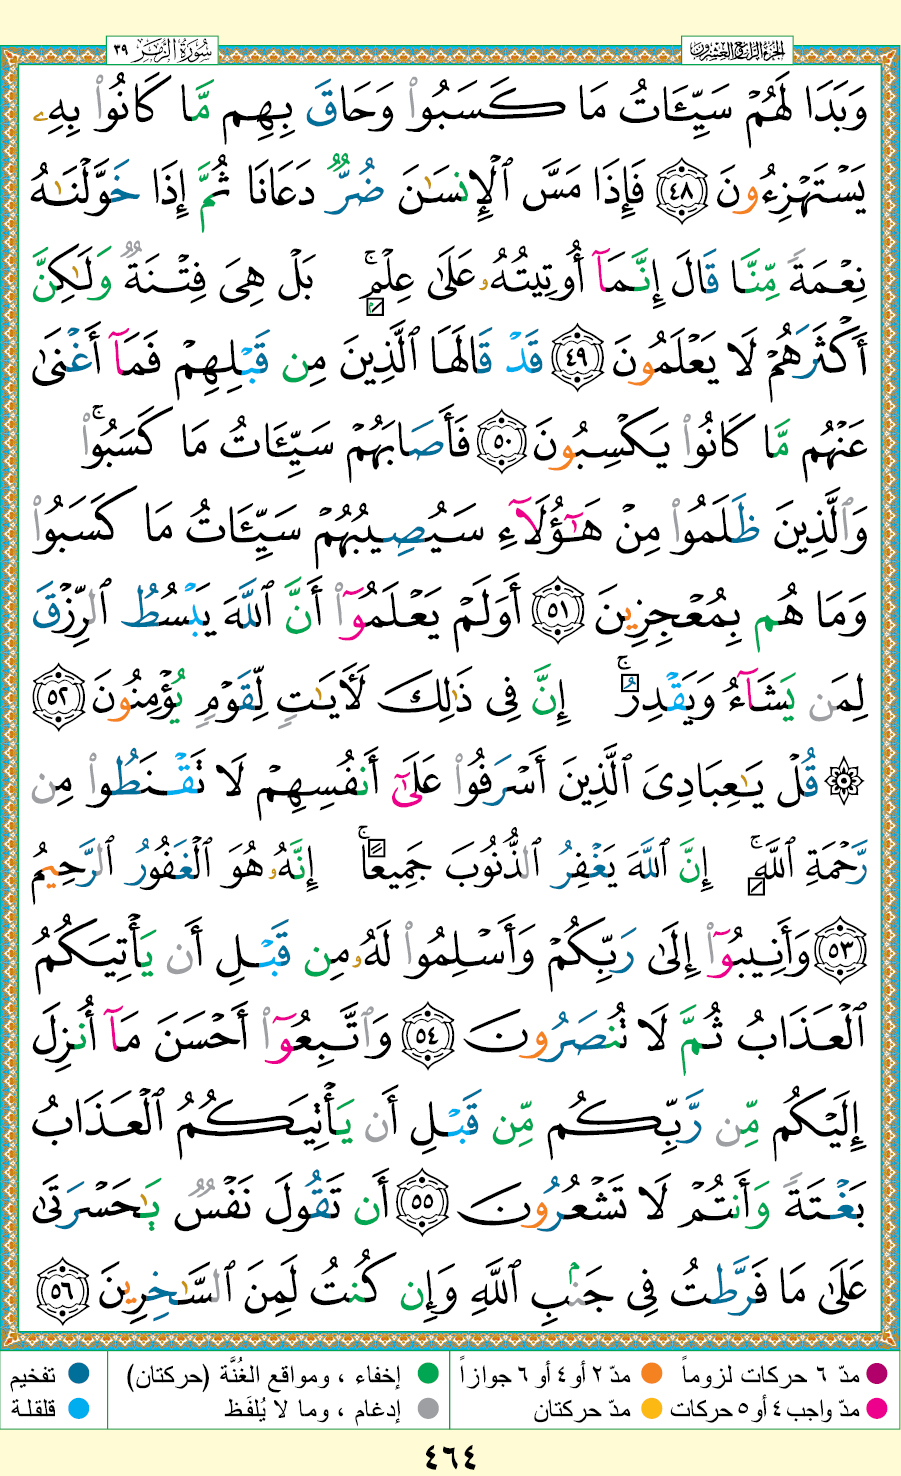 سُورَةُ الزُّمَر ٣٩
الجزء الرابع والعشرون
وَبَدَا لَهُمۡ سَيِّـَٔاتُ مَا كَسَبُواْ وَحَاقَ بِهِم مَّا كَانُواْ بِهِۦ
يَسۡتَهۡزِءُونَ ٤٨ فَإِذَا مَسَّ ٱلۡإِنسَٰنَ ضُرّٞ دَعَانَا ثُمَّ إِذَا خَوَّلۡنَٰهُ
نِعۡمَةٗ مِّنَّا قَالَ إِنَّمَآ أُوتِيتُهُۥ عَلَىٰ عِلۡمِۭۚ بَلۡ هِىَ فِتۡنَةٞ وَلَٰكِنَّ
أَكۡثَرَهُمۡ لَا يَعۡلَمُونَ ٤٩ قَدۡ قَالَهَا ٱلَّذِينَ مِن قَبۡلِهِمۡ فَمَآ أَغۡنَىٰ
عَنۡهُم مَّا كَانُواْ يَكۡسِبُونَ ٥٠ فَأَصَابَهُمۡ سَيِّـَٔاتُ مَا كَسَبُواْۚ
وَٱلَّذِينَ ظَلَمُواْ مِنۡ هَٰٓؤُلَآءِ سَيُصِيبُهُمۡ سَيِّـَٔاتُ مَا كَسَبُواْ
وَمَا هُم بِمُعۡجِزِينَ ٥١ أَوَلَمۡ يَعۡلَمُوٓاْ أَنَّ ٱللَّهَ يَبۡسُطُ ٱلرِّزۡقَ
لِمَن يَشَآءُ وَيَقۡدِرُۚ إِنَّ فِى ذَٰلِكَ لَأٓيَٰتٖ لِّقَوۡمٖ يُؤۡمِنُونَ ٥٢
۞ قُلۡ يَٰعِبَادِىَ ٱلَّذِينَ أَسۡرَفُواْ عَلَىٰٓ أَنفُسِهِمۡ لَا تَقۡنَطُواْ مِن
رَّحۡمَةِ ٱللَّهِۚ إِنَّ ٱللَّهَ يَغۡفِرُ ٱلذُّنُوبَ جَمِيعًاۚ إِنَّهُۥ هُوَ ٱلۡغَفُورُ ٱلرَّحِيمُ
٥٣ وَأَنِيبُوٓاْ إِلَىٰ رَبِّكُمۡ وَأَسۡلِمُواْ لَهُۥ مِن قَبۡلِ أَن يَأۡتِيَكُمُ
ٱلۡعَذَابُ ثُمَّ لَا تُنصَرُونَ ٥٤ وَٱتَّبِعُوٓاْ أَحۡسَنَ مَآ أُنزِلَ
إِلَيۡكُم مِّن رَّبِّكُم مِّن قَبۡلِ أَن يَأۡتِيَكُمُ ٱلۡعَذَابُ
بَغۡتَةٗ وَأَنتُمۡ لَا تَشۡعُرُونَ ٥٥ أَن تَقُولَ نَفۡسٞ يَٰحَسۡرَتَىٰ
عَلَىٰ مَا فَرَّطتُ فِى جَنۢبِ ٱللَّهِ وَإِن كُنتُ لَمِنَ ٱلسَّٰخِرِينَ ٥٦
مدّ ٦ حركات لزوماً مدّ ٢ أو ٤ أو ٦ جوازاً إخفاء ، ومواقع الغُنَّة (حركتان) تفخيم
مدّ واجب ٤ أو ٥ حركات مدّ حركتان إدغام ، وما لا يُلفَظ قلقلة
٤٦٤